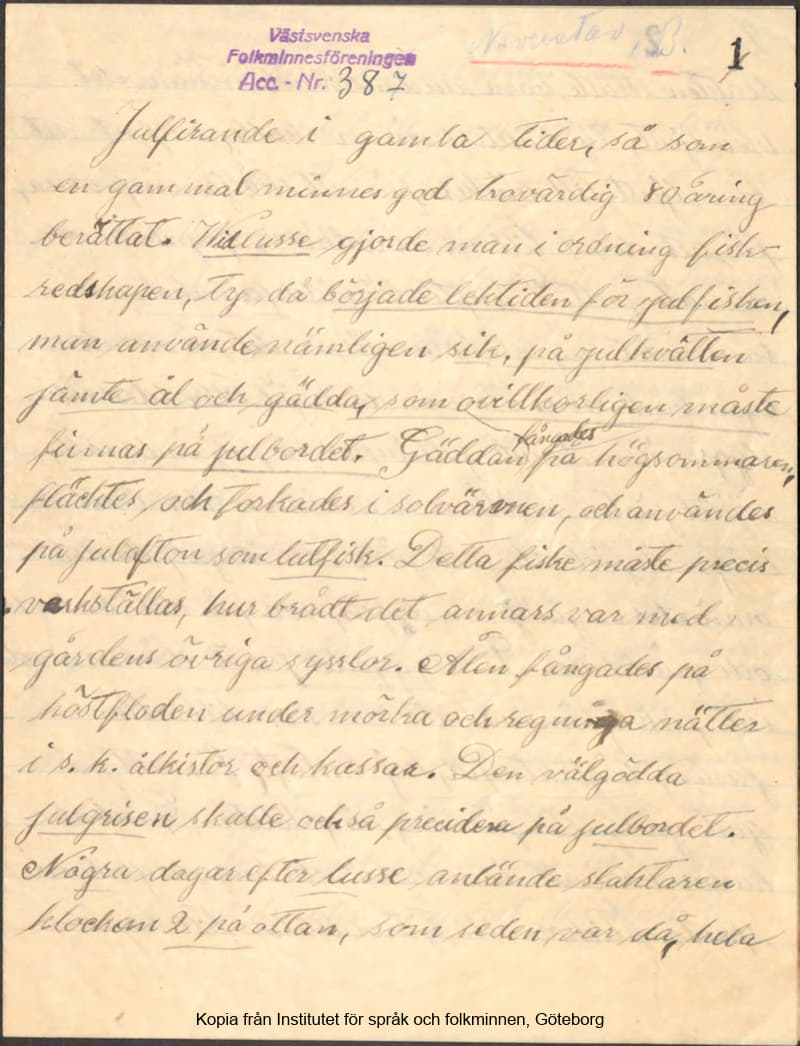 Västsvenska
Folkminnesföreningen
Acc. - Nr. 387
1
Julfirande i gamla tider, så som
en gammal minnesgod trovärdig 80 åring
berättat. Vid lusse gjorde man i ordning fisk-
redskapen, ty då började lektiden för julfisken,
man använde nämligen sik, på julkvällen
jämte ål och gädda, som ovillkorligen måste
finnas på julbordet. Gäddan fångades på högsommaren,
fläcktes och torkades i solvärmen, och användes
på julafton som lutfisk. Detta fiske måste precis
verkställas, hur brådt det annars var med
gårdens övriga sysslor. Ålen fångades på
höstfloden under mörka och regniga nätter
i s. k. ålkistor och kassar. Den välgödda
julgrisen skulle också precidera på julbordet.
Några dagar efter lusse anlände slaktaren
klockan 2 på ottan, som seden var då, hela
Kopia från Institutet för språk och folkminnen, Göteborg